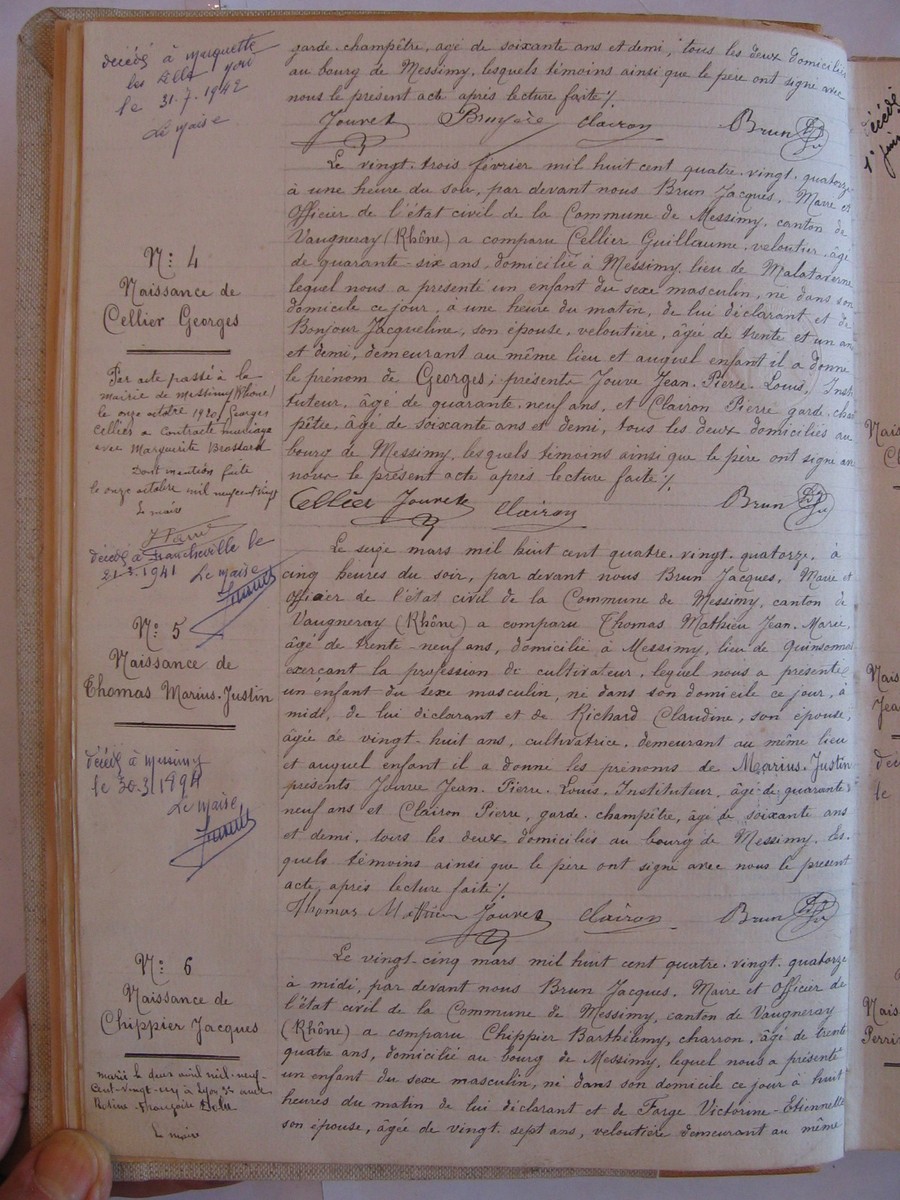 décédé à
le 31.7.1942
Le Maire
garde-champêtre, âgé de soixante ans et demi, tous les deux domiciliés
au bourg de Messimy, lesquels témoins ainsi que le père ont signé avec
nous le présent acte après lecture faite %.
Jouve Bruyère Clairon Brun
N° 4
Naissance de
Cellier Georges
Le vingt-trois février mil huit cent quatre-vingt-quatorze
à une heure du soir, par devant nous Brun Jacques, Maire et
Officier de l'état civil de la Commune de Messimy, canton de
Vaugneray (Rhône) a comparu Cellier Guillaume, veloutier, âgé
de quarante-six ans, domicilié à Messimy, lieu de Malataverne
lequel nous a présenté un enfant du sexe masculin, né dans son
domicile ce jour, à une heure du matin, de lui déclarant et de
Bonjour Jacqueline, son épouse, veloutière, âgée de trente et un ans
et demi, demeurant au même lieu et auquel enfant il a donné
le prénom de Georges; présents Jouve Jean-Pierre-Louis, Insti-
tuteur, âgé de quarante-neuf ans, et Clairon Pierre garde-cham-
pêtre, âgé de soixante ans et demi, tous les deux domiciliés au
bourg de Messimy, lesquels témoins ainsi que le père ont signé avec
nous le présent acte après lecture faite %.
Cellier Jouve Clairon Brun
Par acte passé à la
mairie de Messimy (Rhône)
le onze octobre 1920 Georges
Cellier a contracté mariage
avec Marguerite Brossard
Dont mention faite
le onze octobre mil neuf cent vingt
Le maire
décédé à Francheville le
21.3.1941 Le Maire
N° 5
Naissance de
Thomas Marius-Justin
Le seize mars mil huit cent quatre-vingt-quatorze, à
cinq heures du soir, par devant nous Brun Jacques, Maire et
Officier de l'état civil de la Commune de Messimy, canton de
Vaugneray (Rhône) a comparu Thomas Mathieu Jean-Marie,
âgé de trente-neuf ans, domicilié à Messimy, lieu de Quinsonnat
exerçant la profession de cultivateur, lequel nous a présenté
un enfant du sexe masculin, né dans son domicile ce jour, à
midi, de lui déclarant et de Richard Claudine, son épouse,
âgée de vingt-huit ans, cultivatrice, demeurant au même lieu
et auquel enfant il a donné les prénoms de Marius-Justin
présents Jouve Jean-Pierre-Louis, Instituteur, âgé de quarante-
neuf ans et Clairon Pierre, garde-champêtre, âgé de soixante ans
et demi, tous les deux domiciliés au bourg de Messimy, les-
quels témoins ainsi que le père ont signé avec nous le présent
acte après lecture faite %.
Thomas Mathieu Jouve Clairon Brun
décédé à Messimy
le 30.3.1894
Le Maire
N° 6
Naissance de
Chippier Jacques
Le vingt-cinq mars mil huit cent quatre-vingt-quatorze
à midi, par devant nous Brun Jacques, Maire et Officier de
l'état civil de la Commune de Messimy, canton de Vaugneray
(Rhône) a comparu Chippier Barthélemy, charron, âgé de trente
quatre ans, domicilié au bourg de Messimy, lequel nous a présenté
un enfant du sexe masculin, né dans son domicile ce jour à huit
heures du matin de lui déclarant et de Farge Victorine-Etiennette
son épouse, âgée de vingt sept ans, veloutière demeurant au même
marié le deux avril mil-neuf-
cent-vingt- à Lyon 3e avec
Françoise
Le maire